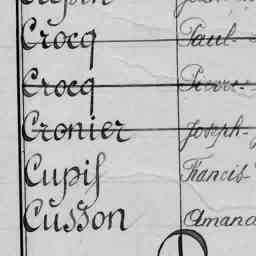 Crocq Paul
Crocq Pierre
Cronier Joseph
Cupif Francis
Cusson Amand